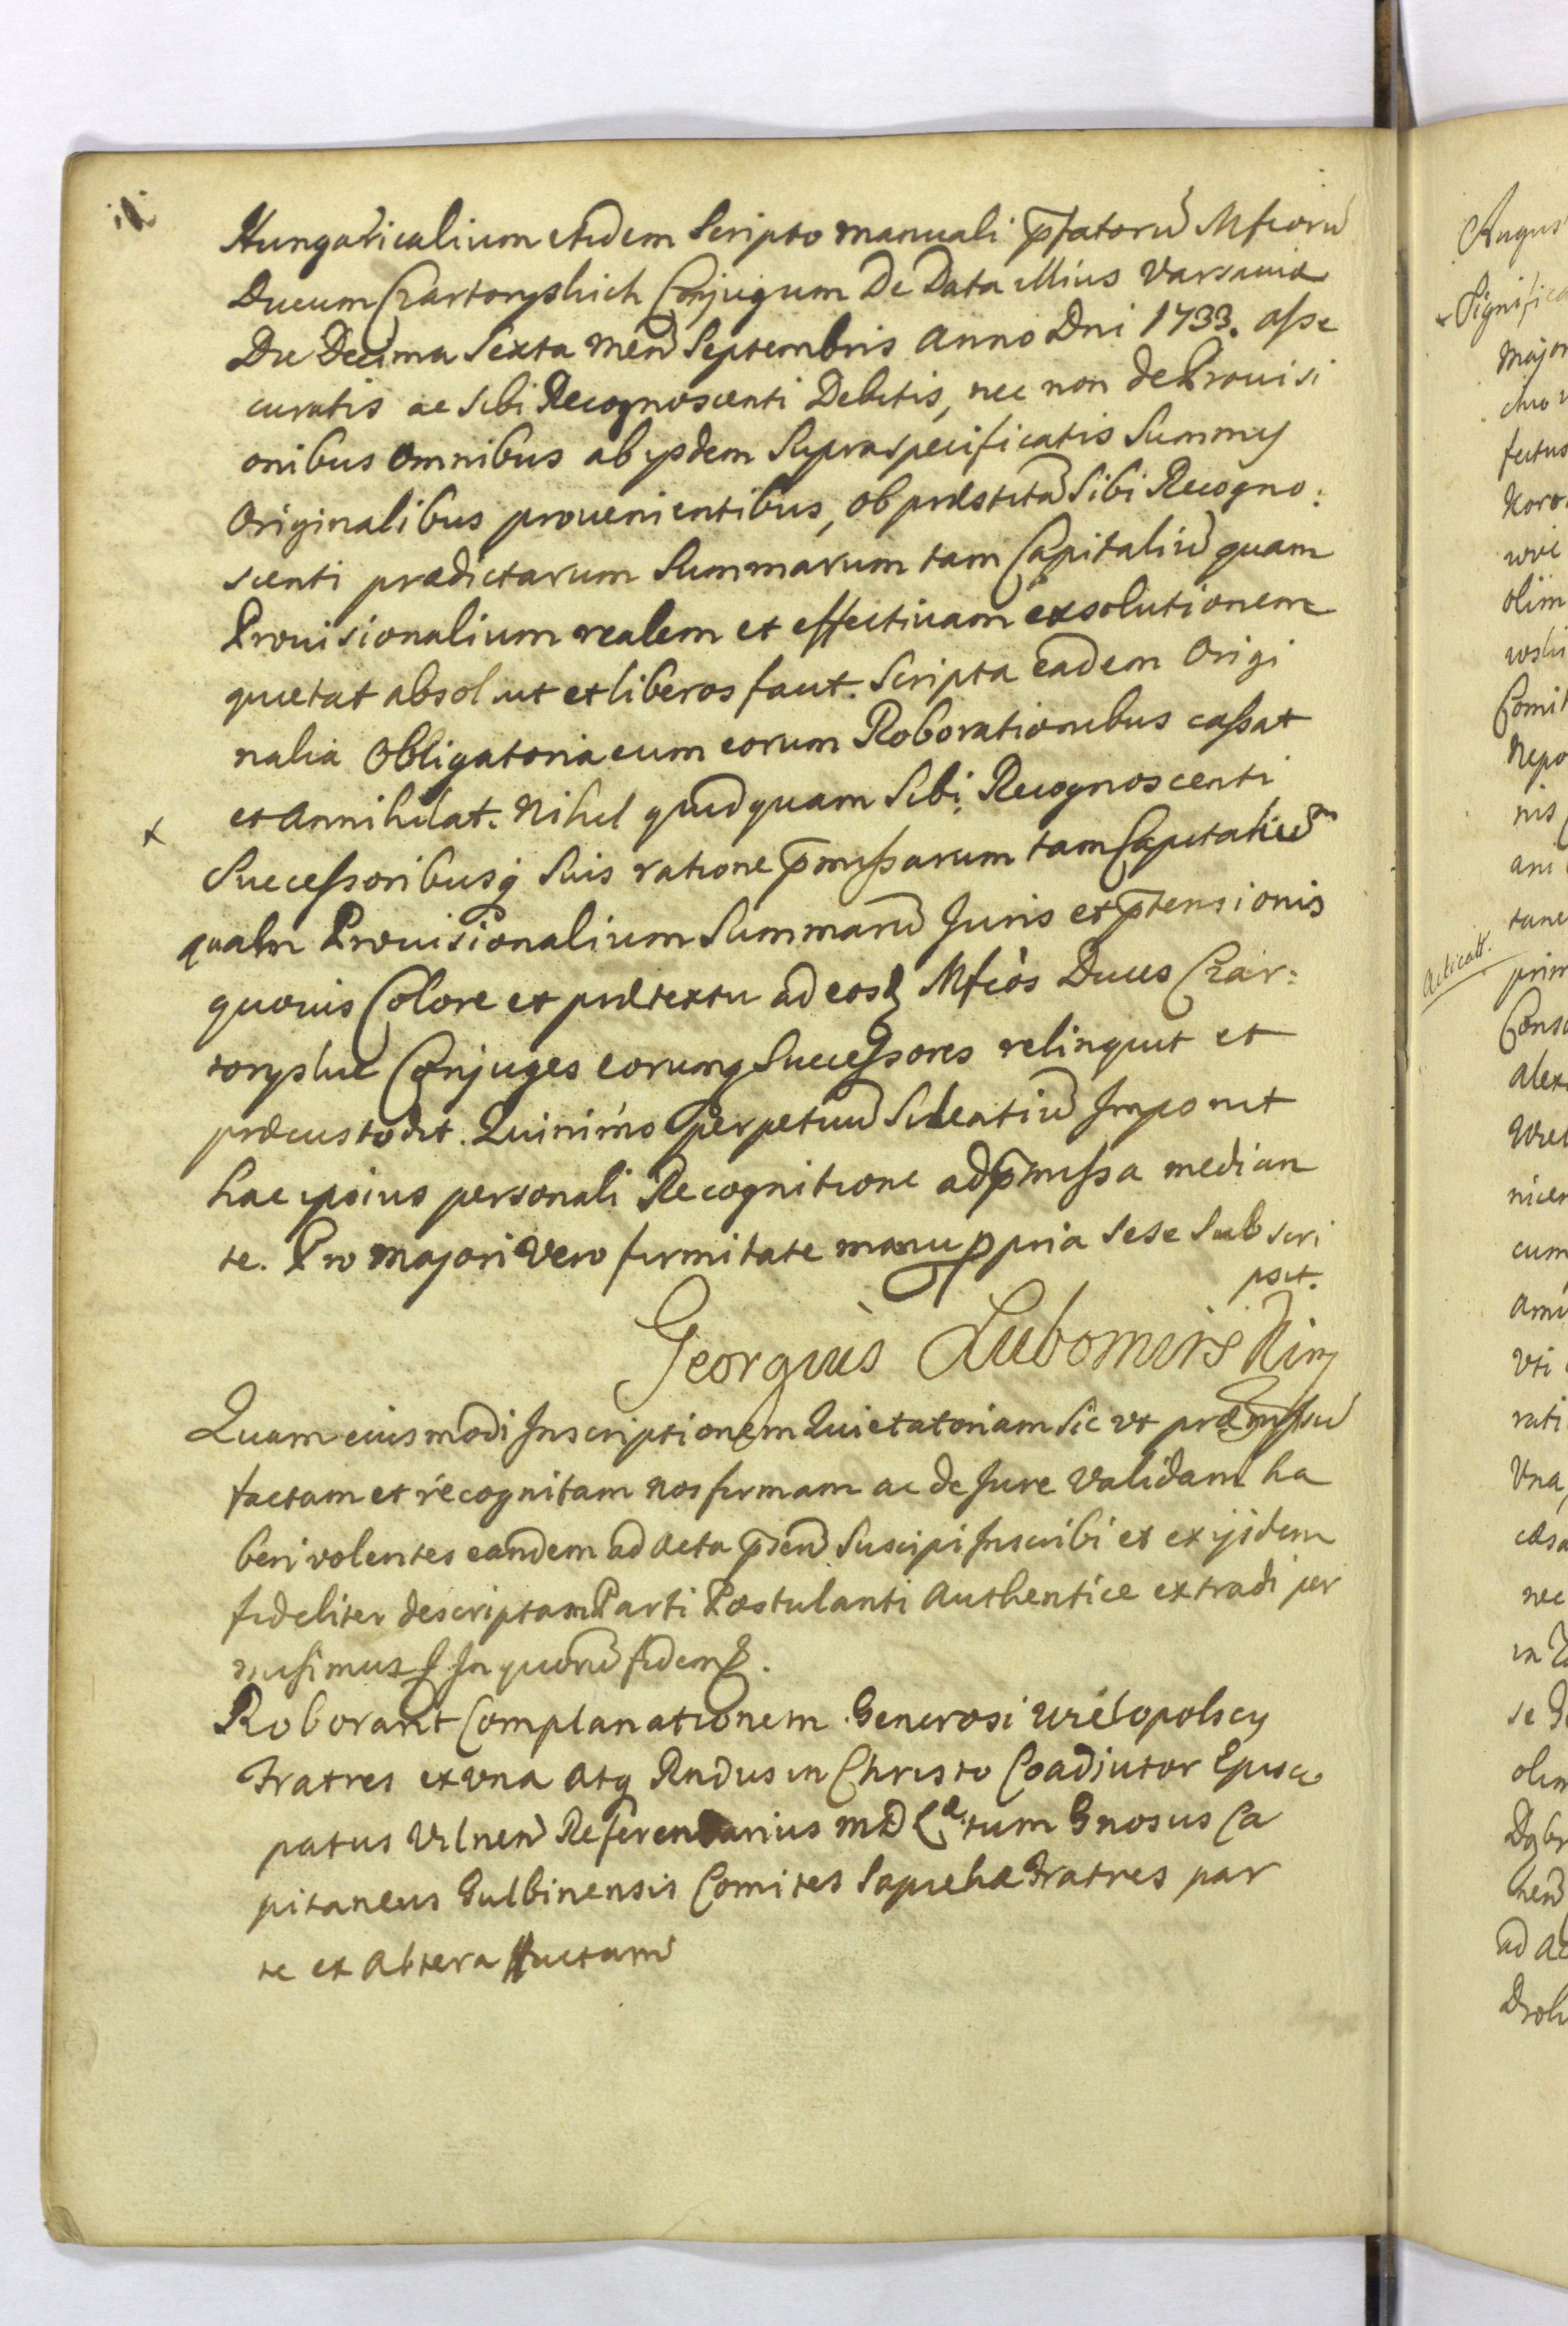 Hungaricalium itidem Scripto manuali p̄fatorū Mficorū
Ducum Czartoryskich Conjugum De Data illius Varsaviæ
Die Decima Sexta Men̄ Septembris Anno Dni 1733. asse
curatis ac Sibi Recognoscenti Debitis, nec non de Provisi
onibus omnibus ab ijsdem Supraspecificatis Summis
Originalibus provenientibus, ob præstitā Sibi Recogno:
scenti prædictarum Summarum tam Capitaliū quam
Provisionalium realem et effectivam exsolutionem
quietat absolvit et liberos facit. Scripta eadem Origi
nalia Obligatoria cum eorum Roborationibus cassat
et Annihilat. Nihil quidquam Sibi Recognoscenti
Successoribusq Suis ratione p̄missarum tam Capitaliū
quam Provisionalium Summarū Juris et p̄tensionis
quovis Colore et prætextu ad eosd Mficos Duces Czar:
toryskie Conjuges eorumq Successores relinquit et
præcustodit. Quinimo perpetuū Silentiū Imponit
hac ipsius personali Recognitione ad p̄missa median
te. Pro majori Vero firmitate manu ppria sese Subscri
psit.
Georgius Lubomirski mp
Quam eiusmodi Inscriptionem Quietatoriam Sic ut præmissū
factam et recognitam nos firmam ac de Jure Validam ha
beri volentes eandem ad Acta p̄sen̄ Suscipi Inscribi et ex ijsdem
fideliter descriptam Parti Postulanti Authentice extradi per
misimus In quorū fidem
Roborant Complanationem Generosi Wielopolscy
Fratres ex una atq Rndus in Christo Coadiutor Episco
patus Vilnen̄ Referendarius M D L tum Gnosus Ca
pitaneus Gulbinensis Comites Sapieha Fratres par
te ex Altera factam
Augus
Significa
Major
fectus
Koro
olim
Comit
Nepo
nis
ani
tane
Acticatt.
prim
Cons
Alex
Wiel
nicen
cum
Ami
Uti
rati
Una
cæsa
nec
in
se
olim
Dąbr
nen̄
ad Ac
Droh